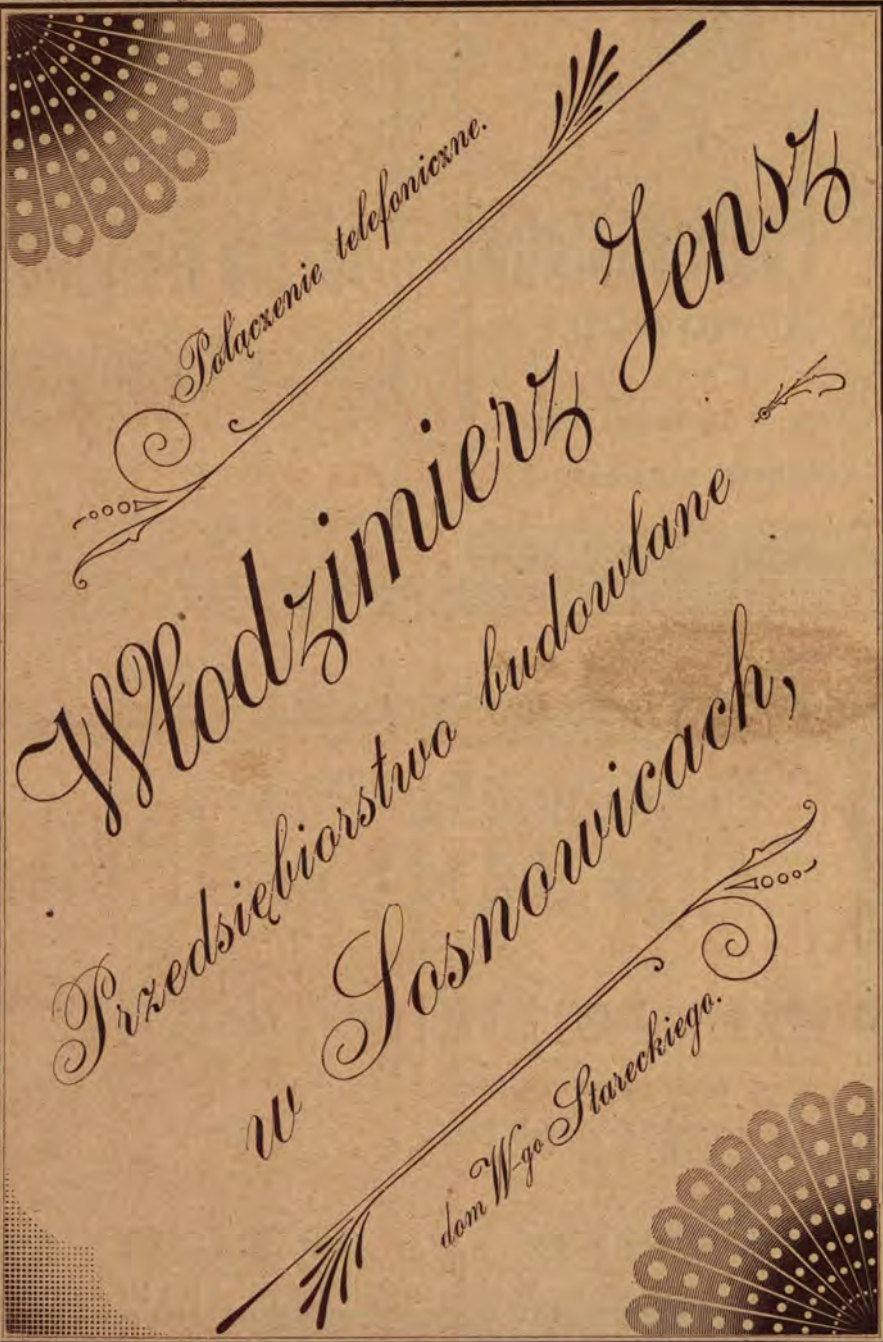 Połączenie telefoniczne.
Włodzimierz Jensz
Przedsiębiorstwo budowlane
w Sosnowicach,
dom W-go Stareckiego.